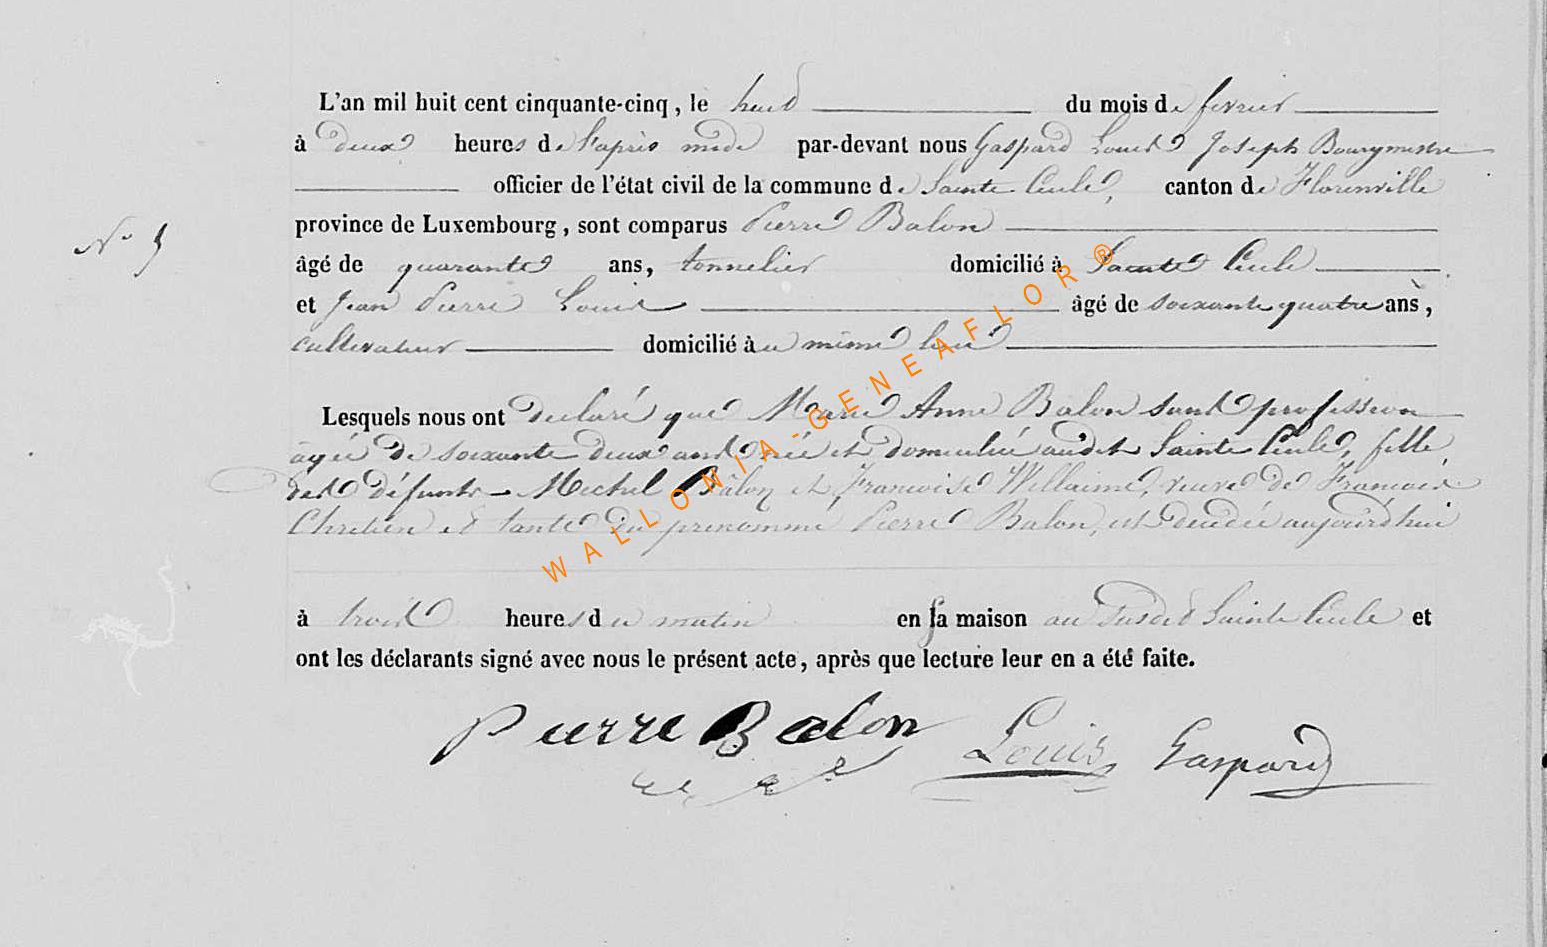 L'an mil huit cent cinquante-cinq, le huit du mois de fevrier
à deux heures de l'après midi par-devant nous Gaspard Louis Joseph Bourgmestre
officier de l'état civil de la commune de Sainte Cécile, canton de Florenville
province de Luxembourg, sont comparus Pierre Balon
N° 5
âgé de quarante ans, tonnelier domicilié à Sainte Cécile
et Jean Pierre Louis âgé de soixante quatre ans,
cultivateur domicilié au même lieu
Lesquels nous ont declaré que Marie Anne Balon sans profession
agée de soixante deux ans née et domiciliée audit Sainte Cécile, fille
des défunts Michel Balon et Francoise Willaime, veuve de Francois
Chretien et tante du prenommé Pierre Balon, est decedée aujourd'hui
à trois heures du matin en sa maison au Sainte Cécile et
ont les déclarants signé avec nous le présent acte, après que lecture leur en a été faite.
Pierre Balon Louis Gaspard
WALLONIA-GENEAFLOR®